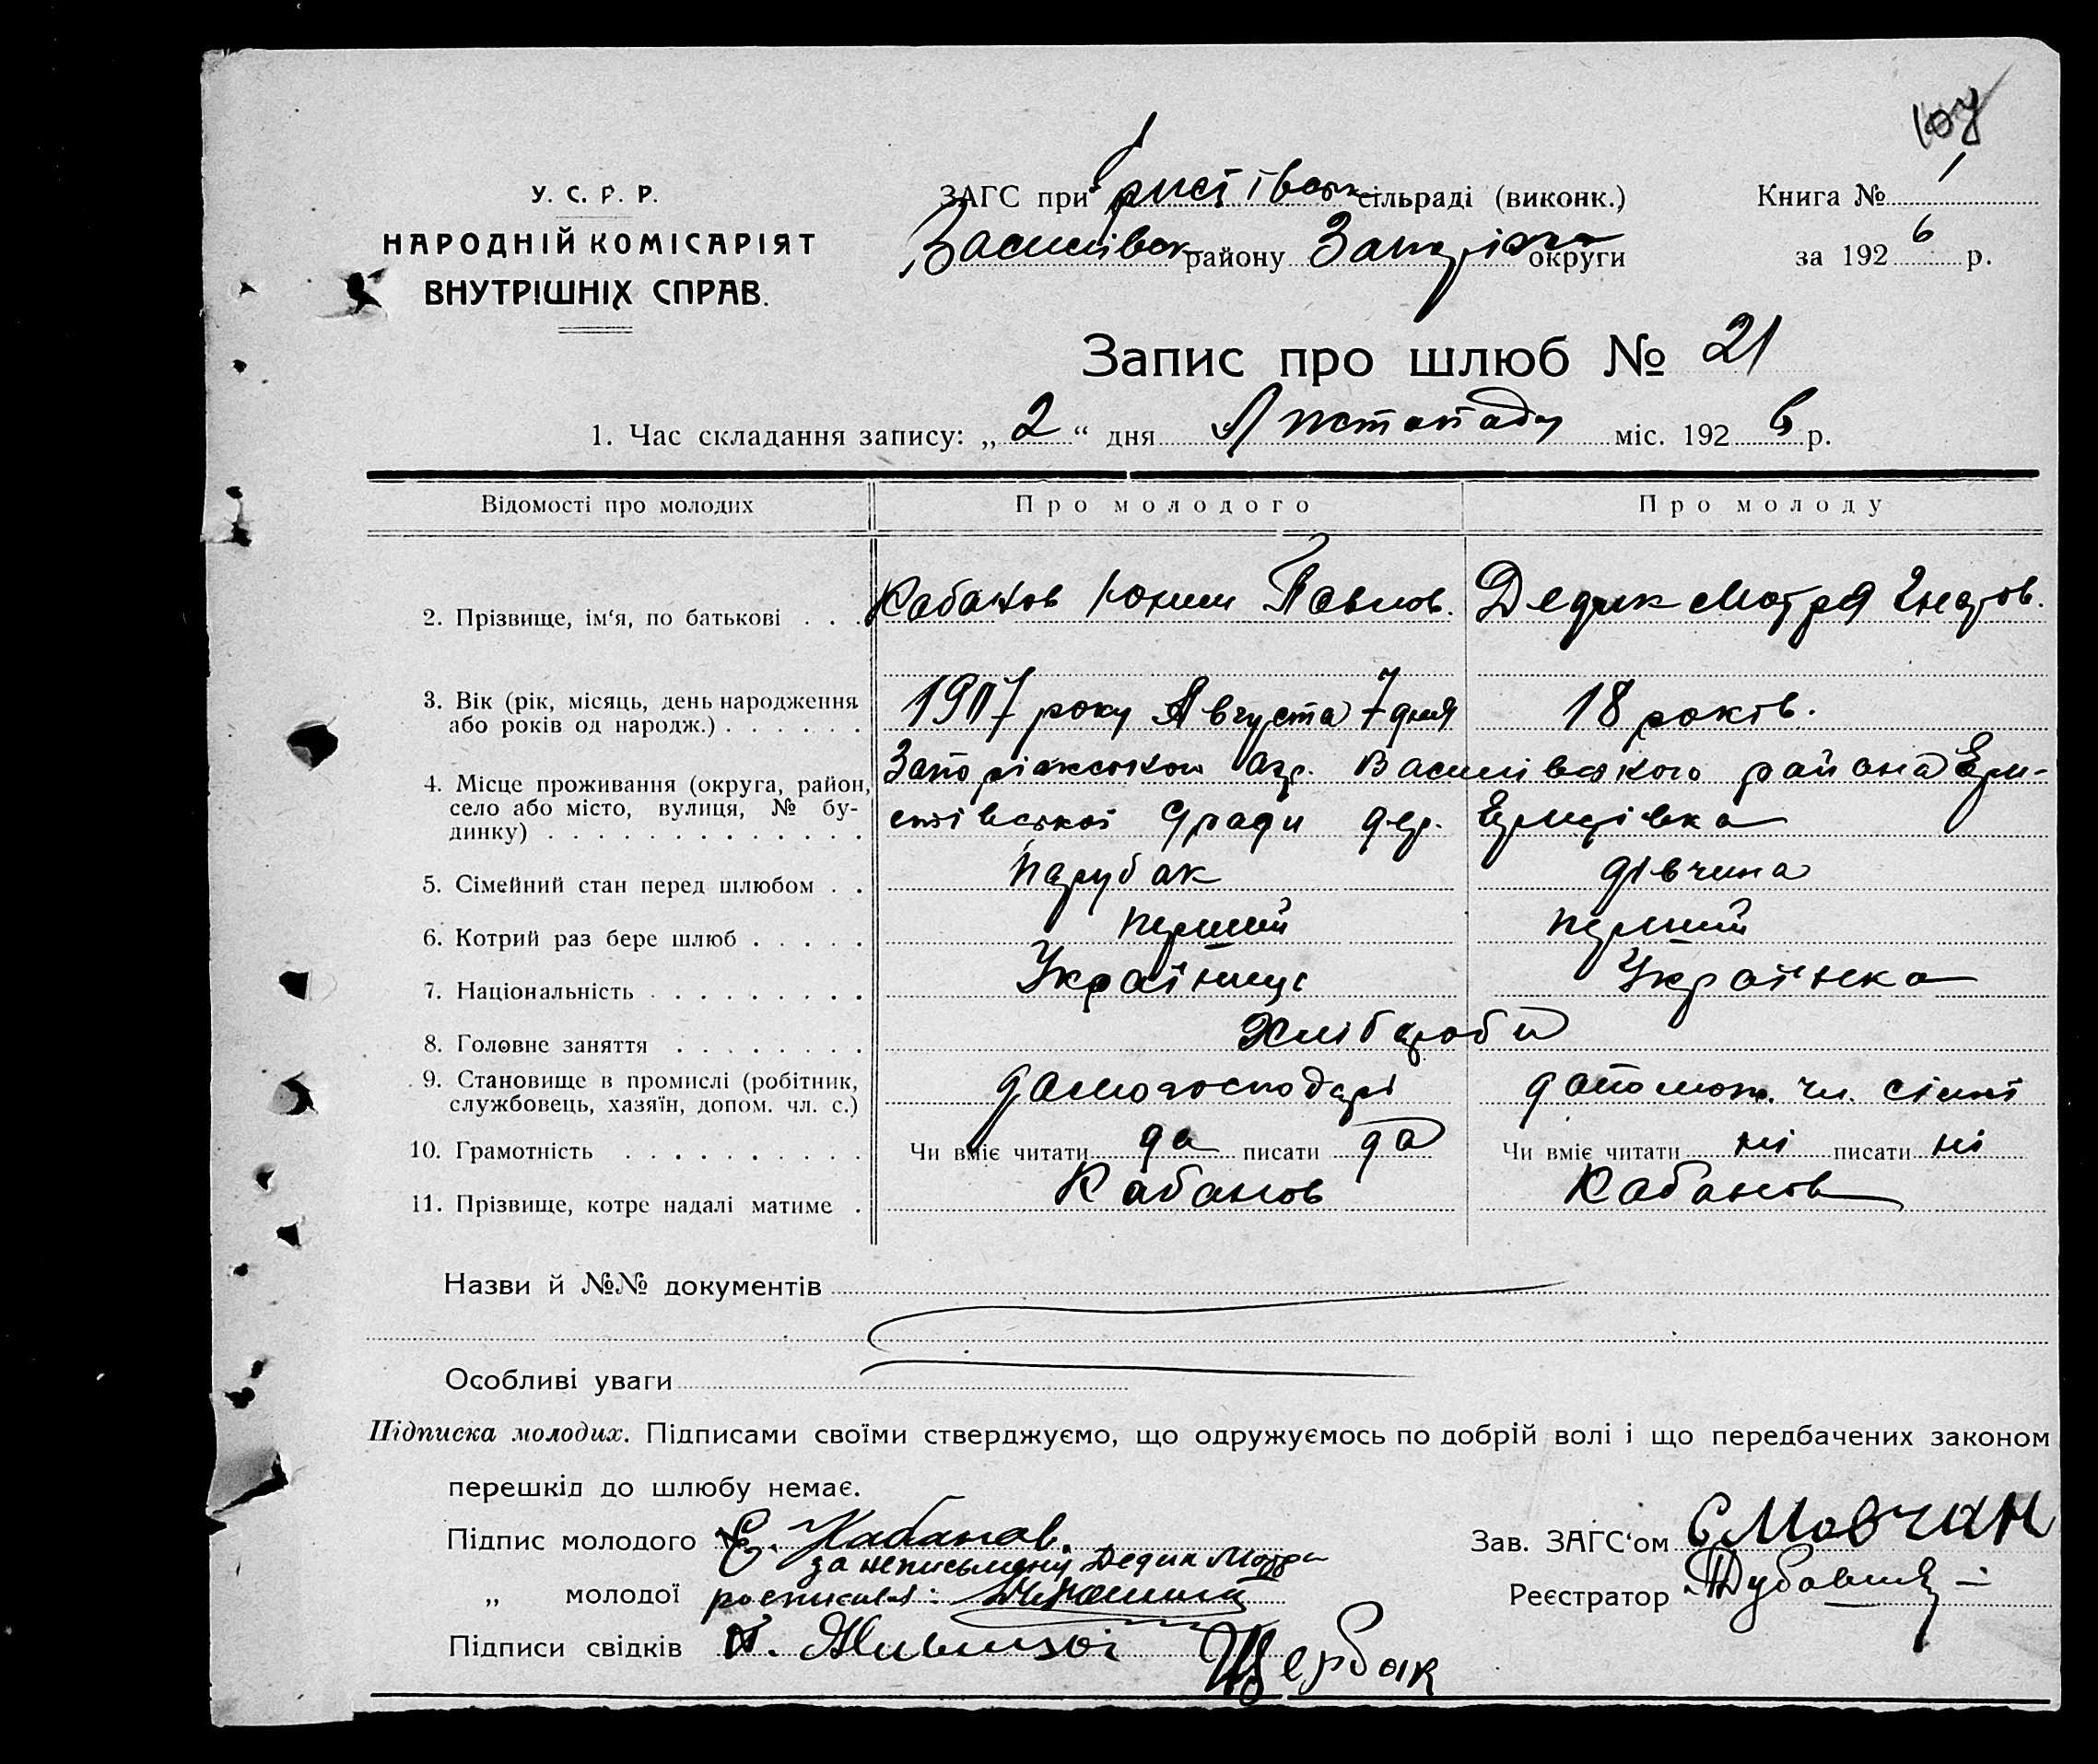 107
У. С. Р. Р.
НАРОДНІЙ КОМІСАРІЯТ
ВНУТРІШНІХ СПРАВ.
ЗАГС при сільраді (виконк.)
Василівськ району Запоріжж округи
Книга № 1
за 192 6 р.
Запис про шлюб № 21
1. Час складання запису: „ 2 “ дня Листопаду міс. 192 6 р.
Відомості про молодих Про молодого Про молоду
2. Прізвище, ім‘я, по батькові . . . Кабанов Павлов. Дедик Мотря Гнатов.
3. Вік (рік, місяць, день народження або років од народж.) . . . . . . 1907 року Августа 7 дня 18 років.
4. Місце проживання (округа, район, село або місто, вулиця, № будинку) . . . . . . . . . . . . . Запоріжського окр. Василівського района
с/ради дер.
5. Сімейний стан перед шлюбом . . Парубак дівчина
6. Котрий раз бере шлюб . . . . . перший перший
7. Національність . . . . . . . . . Українець Українка
8. Головне заняття . . . . . . . . Хліборобы
9. Становище в промислі (робітник, службовець, хазяїн, допом. чл. с.) домогосподарі допомож. чл. сімьі
10. Грамотність . . . . . . . . . . Чи вміє читати да писати да Чи вміє читати ні писати ні
11. Прізвище, котре надалі матиме . Кабанов Кабанов
Назви й №№ документів
Особливі уваги
Підписка молодих. Підписами своїми стверджуємо, що одружуємось по добрій волі і що передбачених законом
перешкід до шлюбу немає.
Підпис молодого Е. Кабанов.
за неписьмену Дедик Мотря
„ молодої росписався:
Підписи свідків Щербак
Зав. ЗАГС‘ом Є Мовчан
Реєстратор